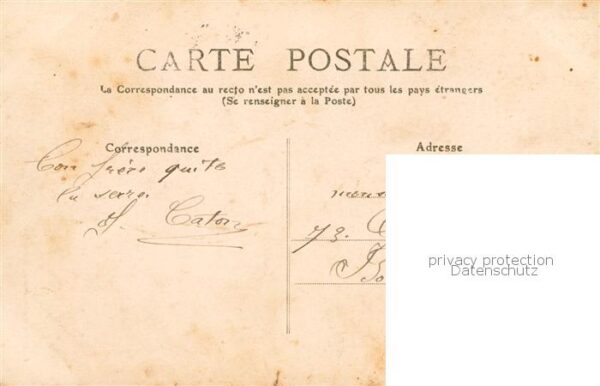 CARTE POSTALE
La Correspondance au recto n'est pas acceptée par tous les pays étrangers
(Se renseigner à la Poste)
Correspondance
Adresse
Ton frère qui te
la serre
Caton
73.
privacy protection
Datenschutz